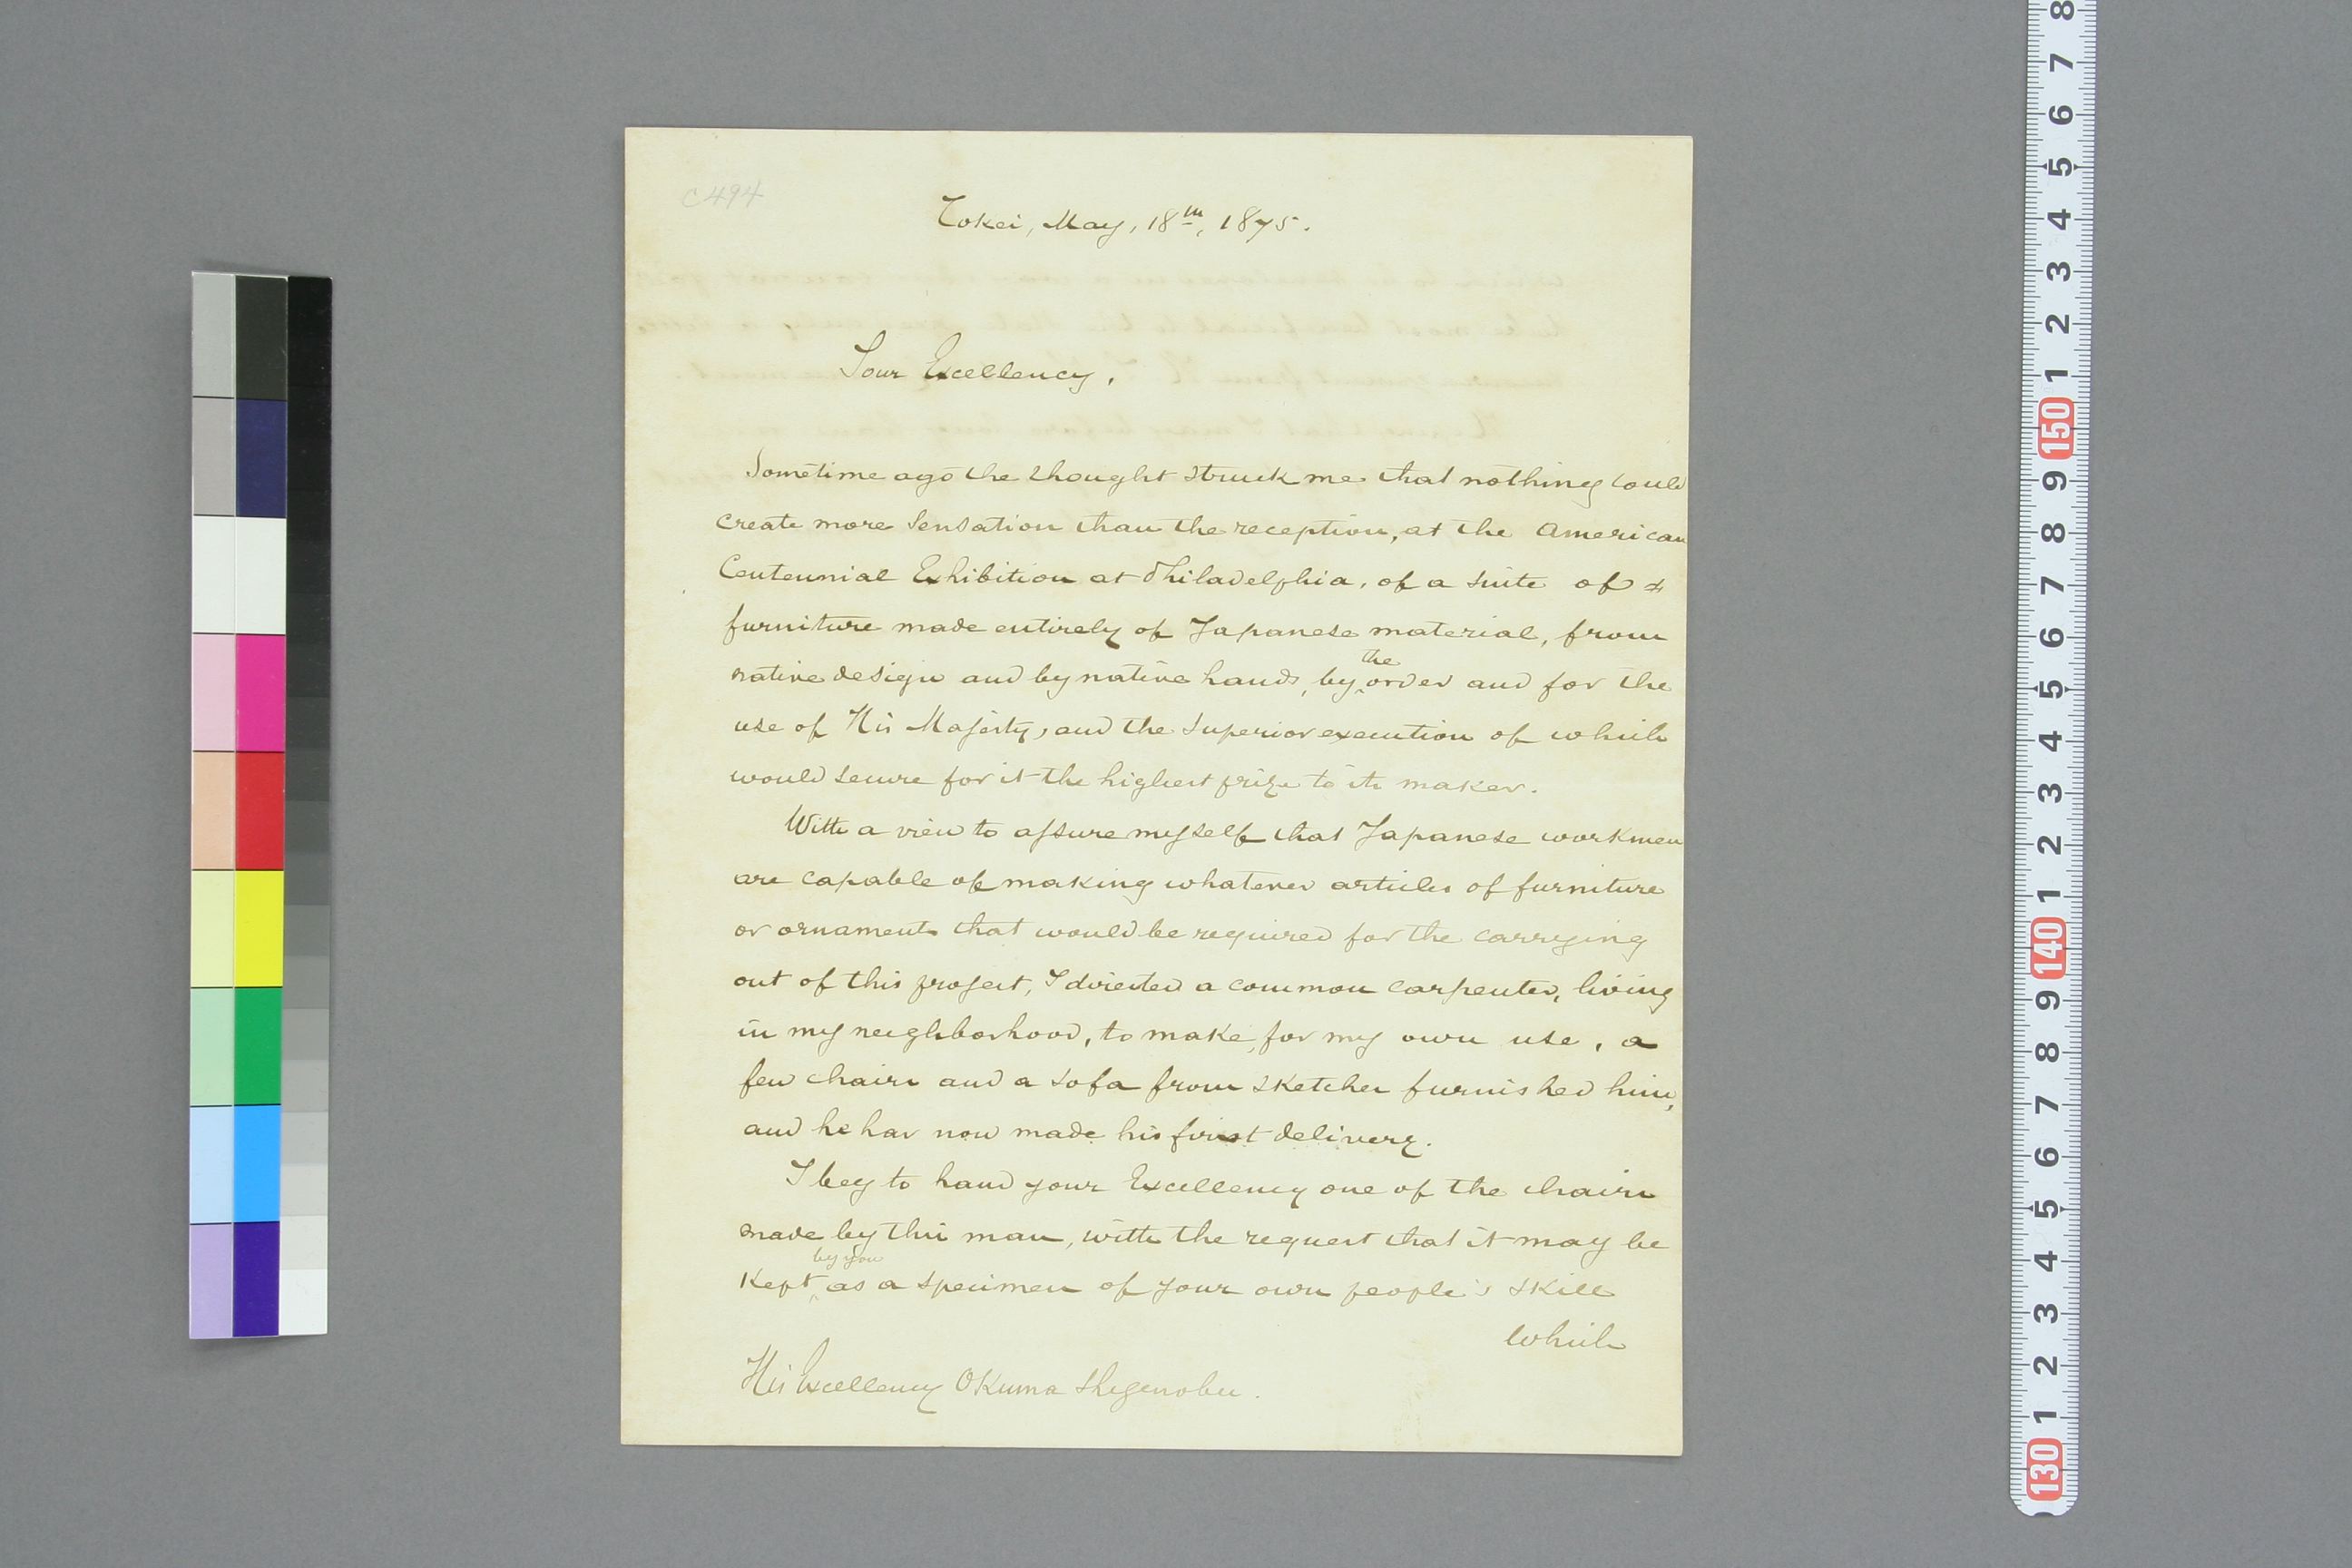 C494
Tokei, May, 18th, 1875.
Your Excellency,
Sometime ago the thought struck me that nothing could
create more sensation than the reception, at the American
Centennial Exhibition at Philadelphia, of a suite of
furniture made entirely of Japanese material, from
native design and by native hands, by the order and for the
use of His Majesty, and the superior execution of which
would secure for it the highest prize to its maker.
With a view to assure myself that Japanese workmen
are capable of making whatever articles of furniture
or ornaments that would be required for the carrying
out of this project, I directed a common carpenter, living
in my neighborhood, to make, for my own use, a
few chairs and a sofa from sketches furnished him,
and he has now made his first delivery.
I beg to hand your Excellency one of the chairs
made by this man, with the request that it may be
kept by you as a specimen of your own people's skill
which
His Excellency Okuma Shigenobu.
8
7
6
5
4
3
2
1
150
9
8
7
6
5
4
3
2
1
140
9
8
7
6
5
4
3
2
1
130